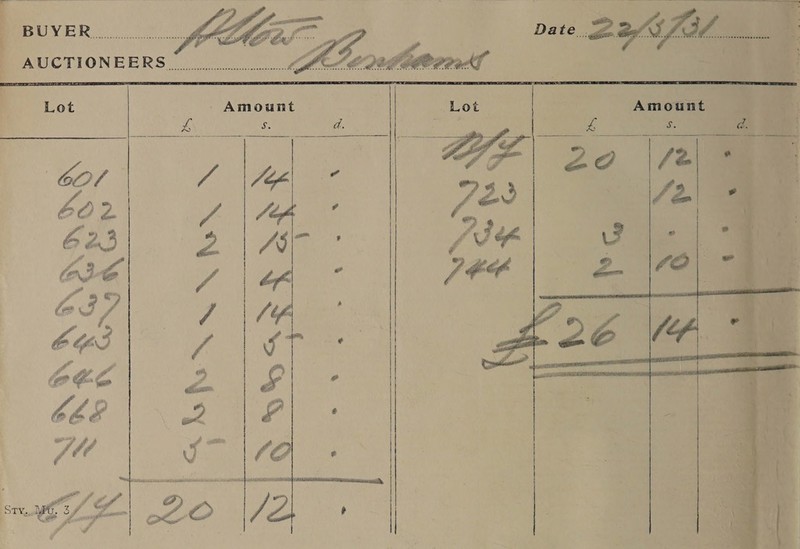 BUYER Date 22/5/31
AUCTIONEERS Bonhams
Lot Amount Lot Amount
£ s. d. £ s. d.
601 1 14 -
602 1 14 -
623 2 15 -
636 1 4 -
637 1 14 -
643 1 5 -
646 2 8 -
668 2 8 -
711 5 10 -
C/F 20 12 -
STY. MU. 3
B/F 20 12 -
723 12 -
734 3 - -
744 2 10 -
£ 26 14 -